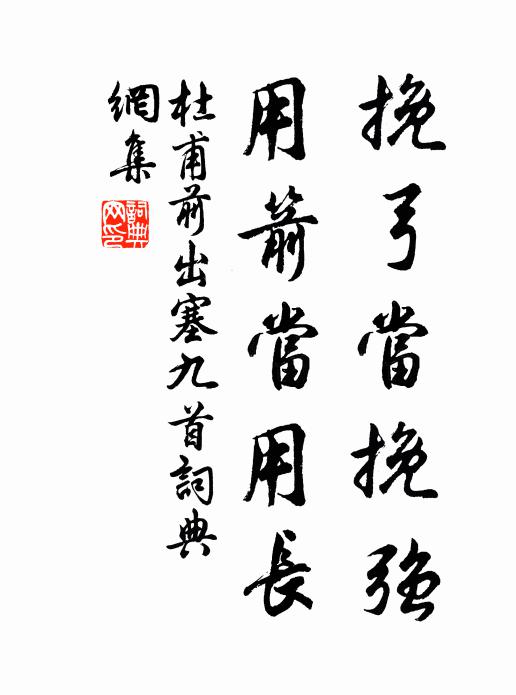 挽弓當挽強
用箭當用長
杜甫前出塞九首詞典
網集
詞典
网印